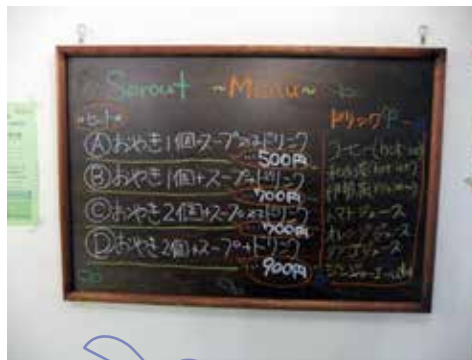 Sprout ~Menu~
セット
Ⓐおやき1個+スープorドリンク
500円
Ⓑおやき1個+スープ+ドリンク
700円
Ⓒおやき2個+スープorドリンク
700円
Ⓓおやき2個+スープ+ドリンク
900円
ドリンク
コーヒー
トマトジュース
オレンジジュース
リンゴジュース
ジンジャーエール